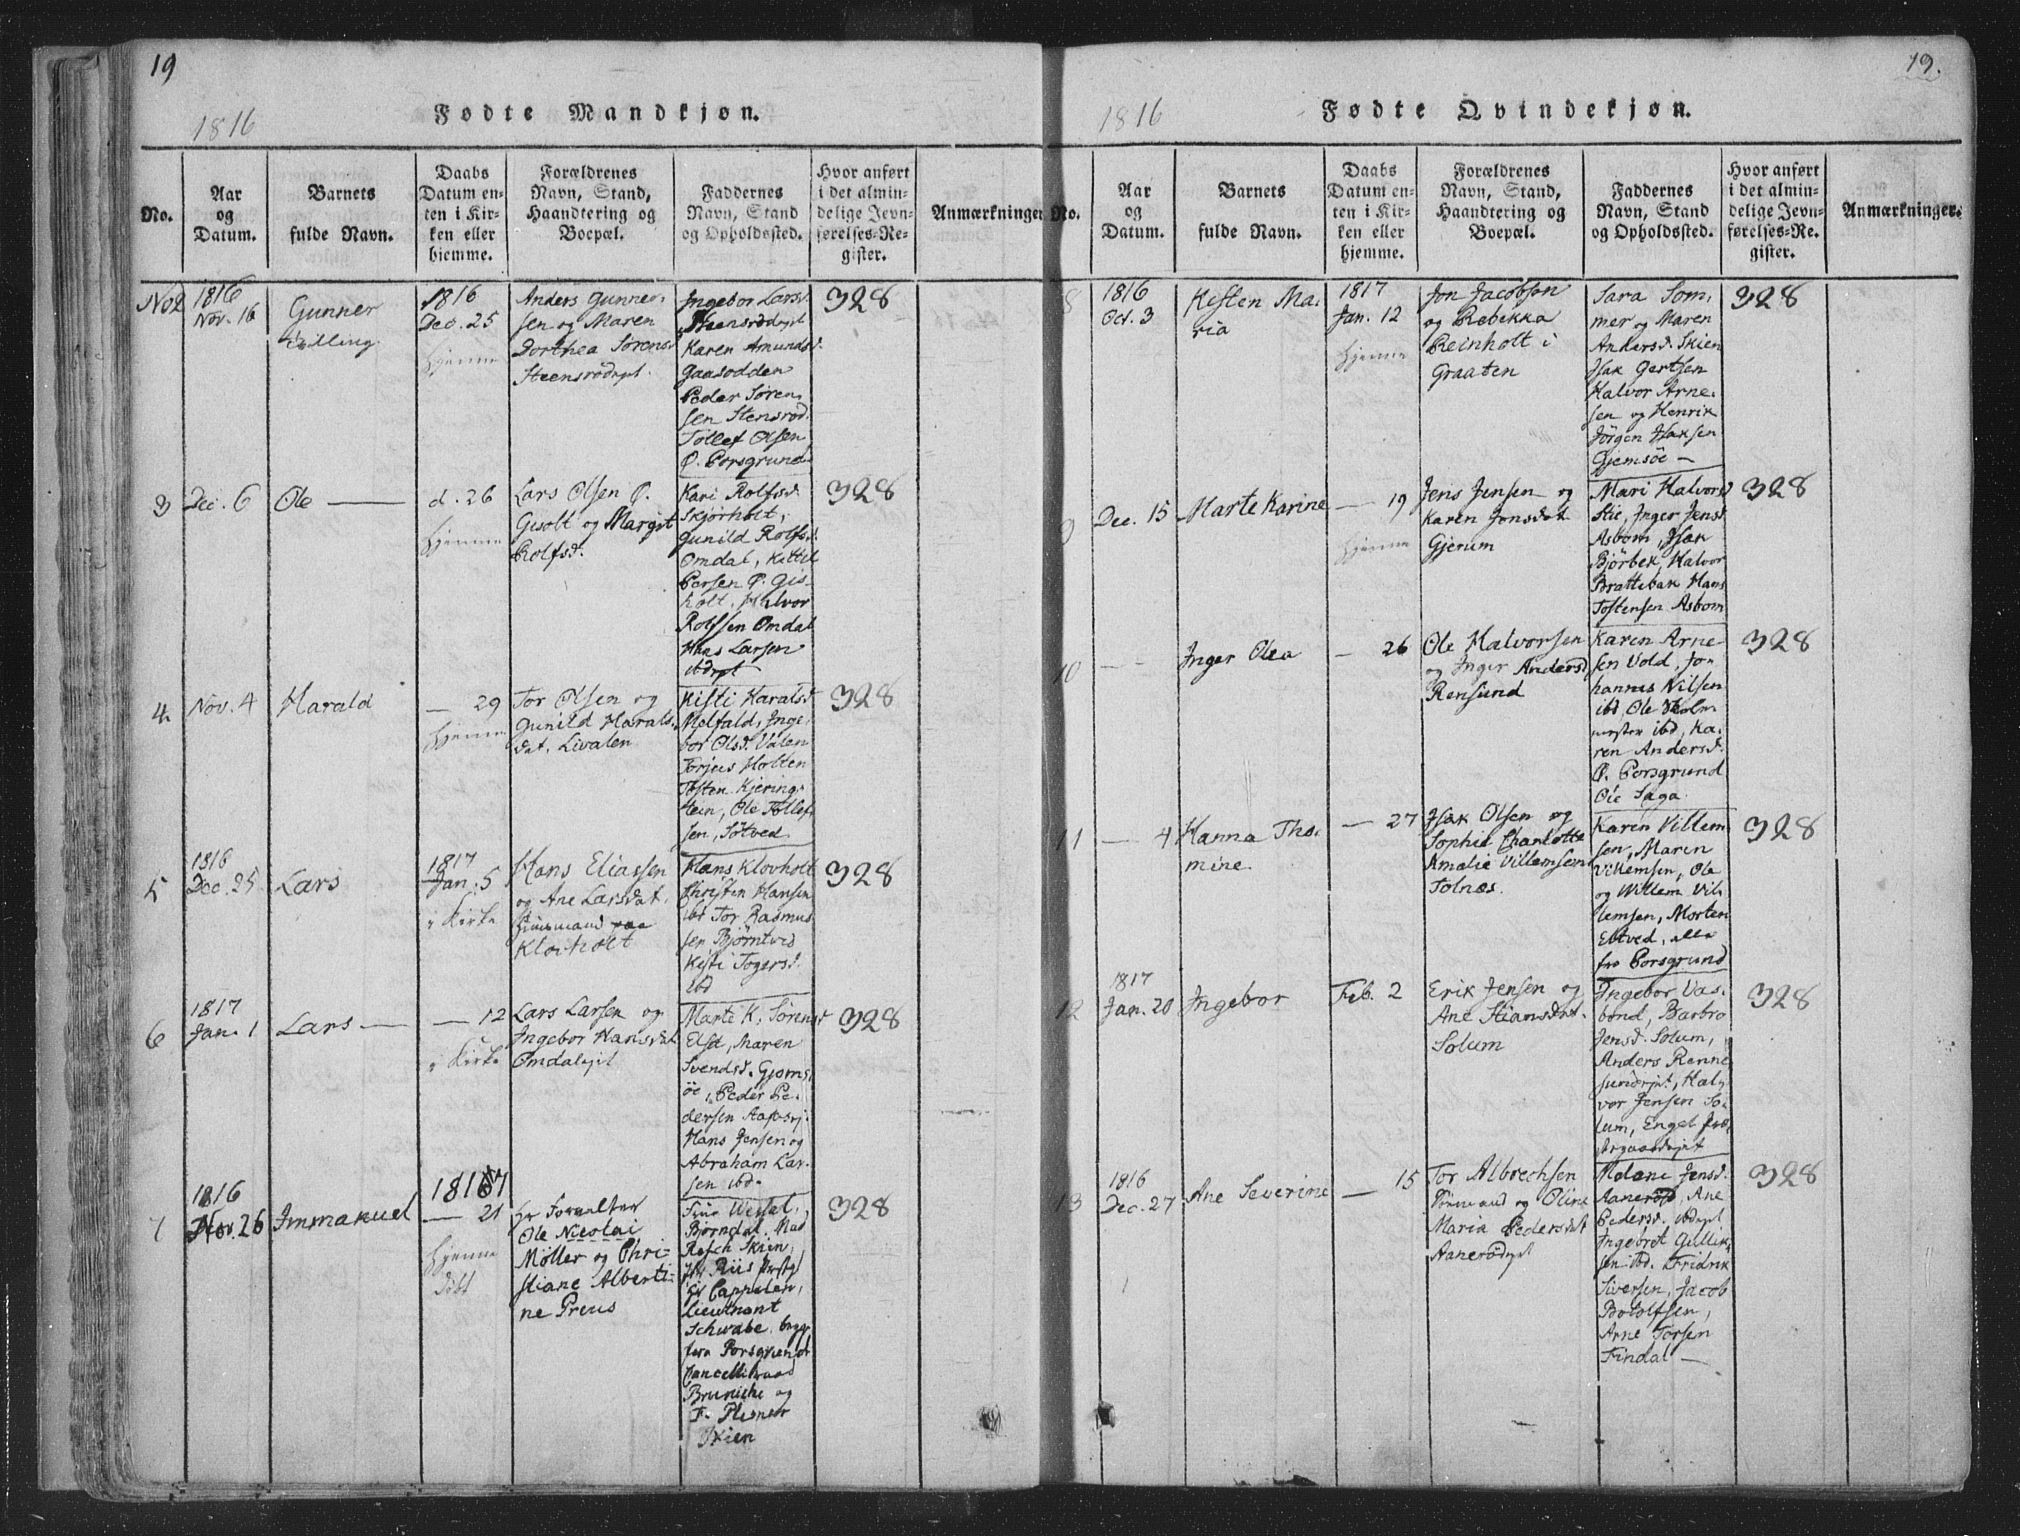 19
1816
Fødte Mandkjøn.
No.
Aar
og
Datum.
Barnets
fulde Navn.
Daabs
Datum en-
ten i Kir-
ken eller
hjemme.
Forældrenes
Navn, Stand,
Haandtering og
Boepæl.
Faddernes
Navn, Stand
og Opholdssted.
Hvor anført
i det almin-
delige Jevn-
førelses-Re-
gister.
Anmærkninger
No 2
1816
Nov. 16
Gunner
1816
Dec. 25
hjemme
Anders Gunner-
sen og Maren
Dorthea Sörens
Steensrödept.
Ingebor Larsd
Steensrödept
Karen Amundsd.
Gaasodden
Peder Sören-
sen Stensröd.
Tollef Olsen
Ø. Porsgrund
328
3
Dec. 6
Ole —
d. 26
hjemme
Lars Olsen Ø.
Gisolt og Margit
Rolfsd.
Kari Rolfsd.
Skjörholt,
Gunild Rolfsd.
Omdal, Kittil
Persen Ø. Gis-
holt, Halvor
Rolfsen Omdal
Hans Larsen
ibdept
328
4.
Nov. 4
Harald
— 29
hjemme
Tor Olsen og
Gunild Harals-
dat. Livalen
Kisti Haralsd
Melfald, Inge-
bor Olsd. Valen
Torjus Holten
Tosten Kjering-
tein, Ole Tollef-
sen, Sötved
328
5
1816
Dec. 25
Lars
1817
Jan. 5
i Kirke
Hans Eliassen
og Ane Larsdat.
Huusmand paa
Klovholt
Hans Klovholt
Christen Hansen
ibd Tor Rasmus-
sen Björntved
Kisti Togersd.
ibd
328
6
1817
Jan. 1
Lars —
— 12
i Kirke
Lars Larsen og
Ingebor Hansdat
Omdalejet
Marte K. Sörensd
Elst, Maren
Svendsd. Gjems-
öe, Peder Pe-
dersen Aafosej.
Hans Jensen og
Abraham Lar-
sen ibd.
328
7
1816
Nov. 26
Immanuel
1817
— 21
hjemme
död
Hr Forvalter
Ole Nicolai
Möller og Chri-
stiane Alberti-
ne Preus
Fru Wessel,
Björndal, Mad
Resch Skien,
Hr Riis Prstg
Hr Cappelen,
Lieutnant
Schwabe, begge
fra Porsgrund
Cancelliraad
Bruniche og
F. Plesner
Skien
328
19.
1816
Fødte Qvindekjøn.
No.
Aar
og
Datum.
Barnets
fulde Navn.
Daabs
Datum en-
ten i Kir-
ken eller
hjemme.
Forældrenes
Navn, Stand,
Haandtering og
Boepæl.
Faddernes
Navn, Stand
og Opholdssted.
Hvor anført
i det almin-
delige Jevn-
førelses-Re-
gister.
Anmærkninger.
8
1816
Oct. 3
Kisten Ma-
ria
1817
Jan. 12
hjemme
Jon Jacobsen
og Rebekka
Reinholt i
Graaten
Sara Som-
mer og Maren
Andersd. Skien
Isak Gertsen
Halvor Arne-
sen og Henrik
Jörgen Isaksen
Gjemsöe —
328
9
Dec. 15
Marte Karine
— 19
hjemme
Jens Jensen og
Karen Jonsdat
Gjerum
Mari Halvorsd
Stie, Inger Jensd
Asbom, Isak
Björbek, Halvor
Brattebak Hans
Tostensen Asbom
328
10
— -
Inger Olea
— 26
Ole Halvorsen
og Inger Andersd
Rensund
Karen Arne
sen Vold, Jo-
hannes Nilsen
ibd, Ole Skolm
mester ibd, Ka-
ren Andersd.
Ø. Porsgrund
Ole Saga.
328
11
— 4
Hanna Tho-
mine.
— 27
Isak Olsen og
Sophie Charlotte
Amalie Villemsen
Tolnæs.
Karen Villem
sen, Maren
Villemsen, Ole
og Willem Vil-
lemsen, Morten
Eltved, alle
fra Porsgrund
328
12
1817
Jan. 20
Ingebor
Feb. 2
Erik Jensen og
Ane Stiansdat.
Solum
Ingebor Vas-
bond, Barbro
Jensd. Solum,
Anders Renne
sundejet, Hal-
vor Jensen So-
lum, Engel Præ-
stegaardejet
328
13
1816
Dec. 27
Ane Severine
— 15
Tor Albrechsen
og Oline
Maria Pedersdat
Aanerödept
Malene Jensd.
Aaneröd, Ane
Pedersd. ibdept
Ingebret Gullik-
sen ibd. Fridrik
Siversen, Jacob
Botolfsen,
Arne Torsen
Findal —
328